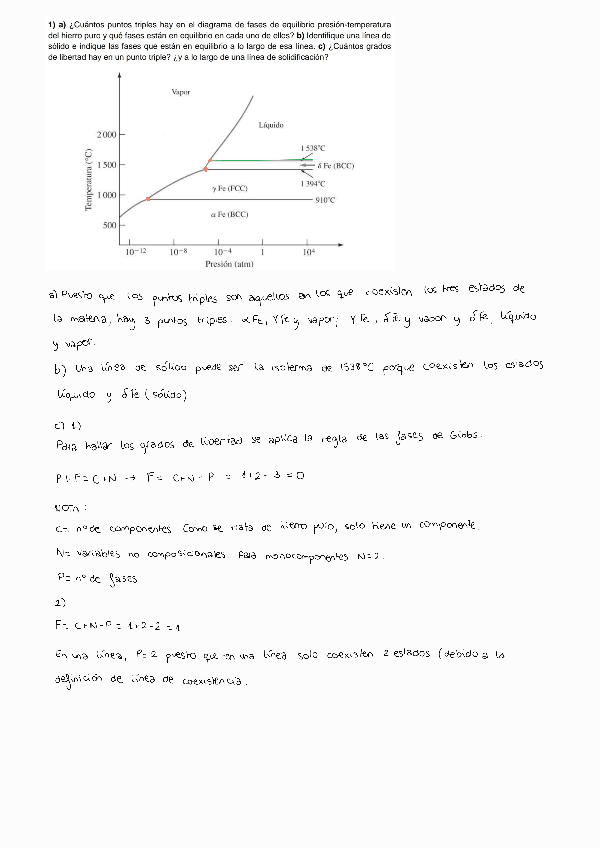 1) a) ¿Cuántos puntos triples hay en el diagrama de fases de equilibrio presión-temperatura
del hierro puro y qué fases están en equilibrio en cada uno de ellos? b) Identifique una línea de
sólido e indique las fases que están en equilibrio a lo largo de esa línea. c) ¿Cuántos grados
de libertad hay en un punto triple? ¿y a lo largo de una línea de solidificación?
Vapor
Líquido
2 000
1 538°C
1 500
δ Fe (BCC)
Temperatura (°C)
γ Fe (FCC)
1 394°C
1 000
910°C
α Fe (BCC)
500
10⁻¹² 10⁻⁸ 10⁻⁴ 1 10⁴
Presión (atm)
a) Puesto que los puntos triples son aquellos en los que coexisten los tres estados de
la materia, hay 3 puntos triples: αFe, γFe y vapor; γFe, δFe y vapor y δFe, líquido
y vapor.
b) Una línea de sólido puede ser la isoterma de 1538°C porque coexisten los estados
líquido y δFe (sólido)
c) 1)
Para hallar los grados de libertad se aplica la regla de las fases de Gibbs:
P+F=C+N → F= C+N-P = 1+2-3=0
NOTA:
C= nº de componentes. Como se trata de hierro puro, solo tiene un componente.
N= variables no composicionales. Para monocomponentes N=2.
P= nº de fases
2)
F= C+N-P = 1+2-2 = 1
En una línea, P=2 puesto que en una línea solo coexisten 2 estados (debido a la
definición de línea de coexistencia.